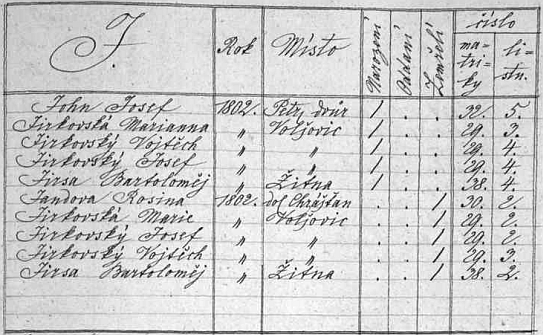 J. Rok Místo Narození Oddaní Zemřelí číslo matriky listu.
John Josef 1802. Petr. dvůr 1 . . 32. 5.
Jirkovská Marianna " Volšovic 1 . . 29. 3.
Jirkovský Vojtěch " " 1 . . 29. 4.
Jirkovský Josef " " 1 . . 29. 4.
Jirsa Bartoloměj " Žitna 1 . . 38. 4.
Jandova Rosina 1802. dol. . . 1 30. 2.
Jirkovská Marie " Volšovic . . 1 29. 2.
Jirkovský Josef " " . . 1 29. 2.
Jirkovský Vojtěch " " . . 1 29. 3.
Jirsa Bartoloměj " Žitna . . 1 38. 2.